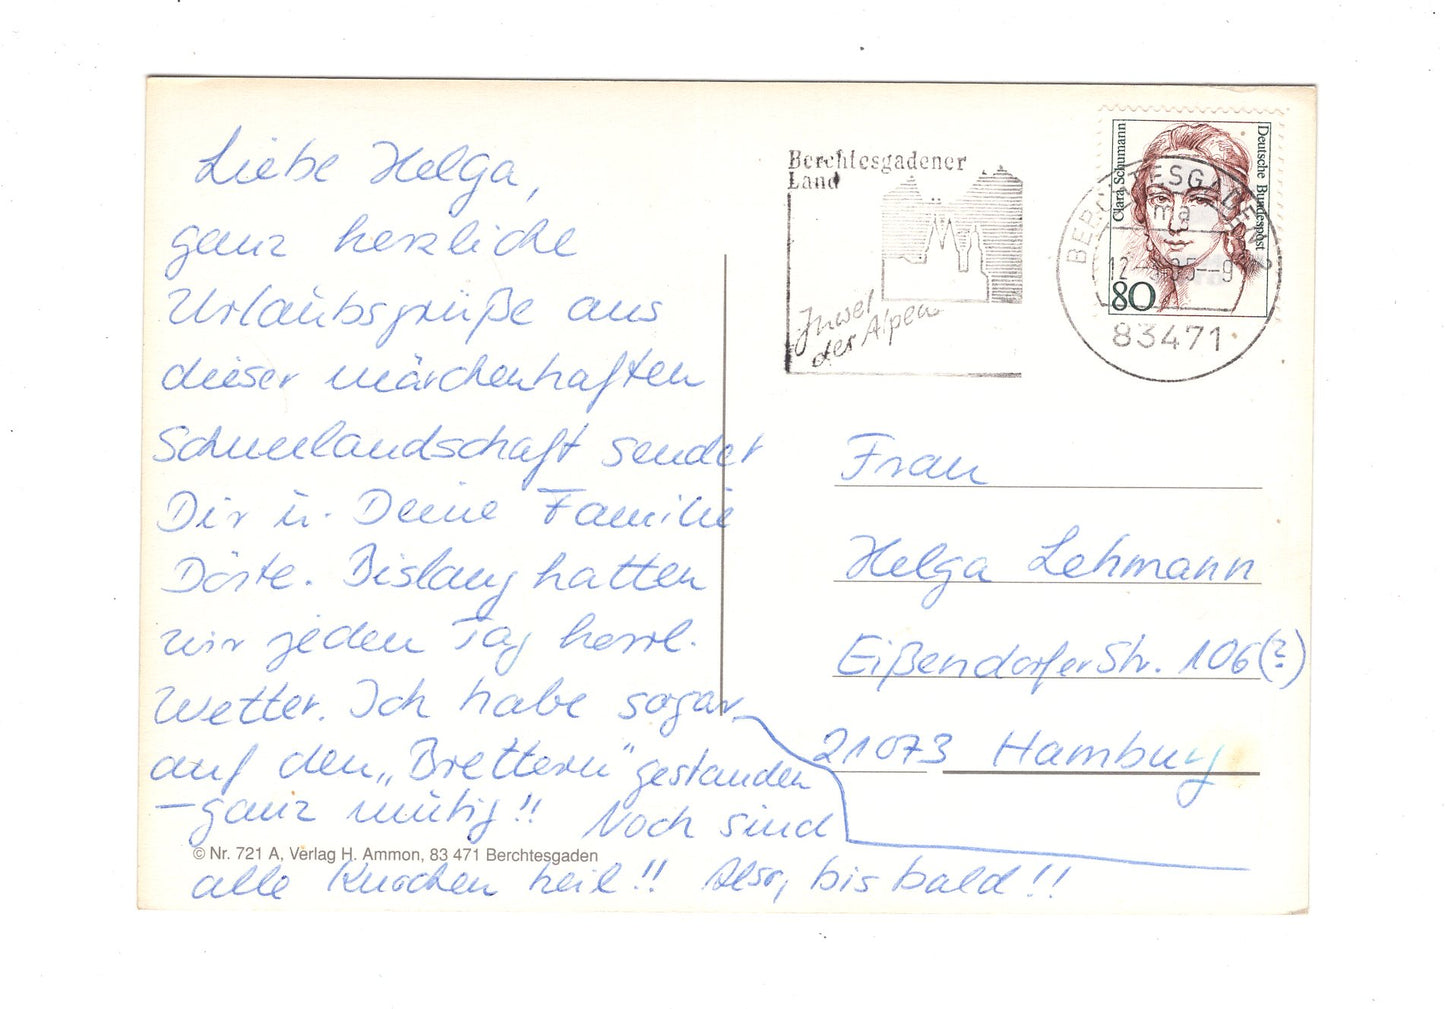 Liebe Helga,
ganz herzliche
Urlaubsgrüße aus
dieser märchenhaften
Schneelandschaft sendet
Dir u. Deine Familie
Dörte. Bislang hatten
wir jeden Tag herrl.
Wetter. Ich habe sogar
auf den „Brettern“ gestanden
– ganz mutig!! Noch sind
alle Knochen heil!! Also, bis bald!!
© Nr. 721 A, Verlag H. Ammon, 83 471 Berchtesgaden
Berchtesgadener
Land
Insel
der Alpen
Clara Schumann
Deutsche Bundespost
80
BERCHTESGADEN 2
ma
83471
Frau
Helga Lehmann
Eißendorfer Str. 106 (?)
21073 Hamburg